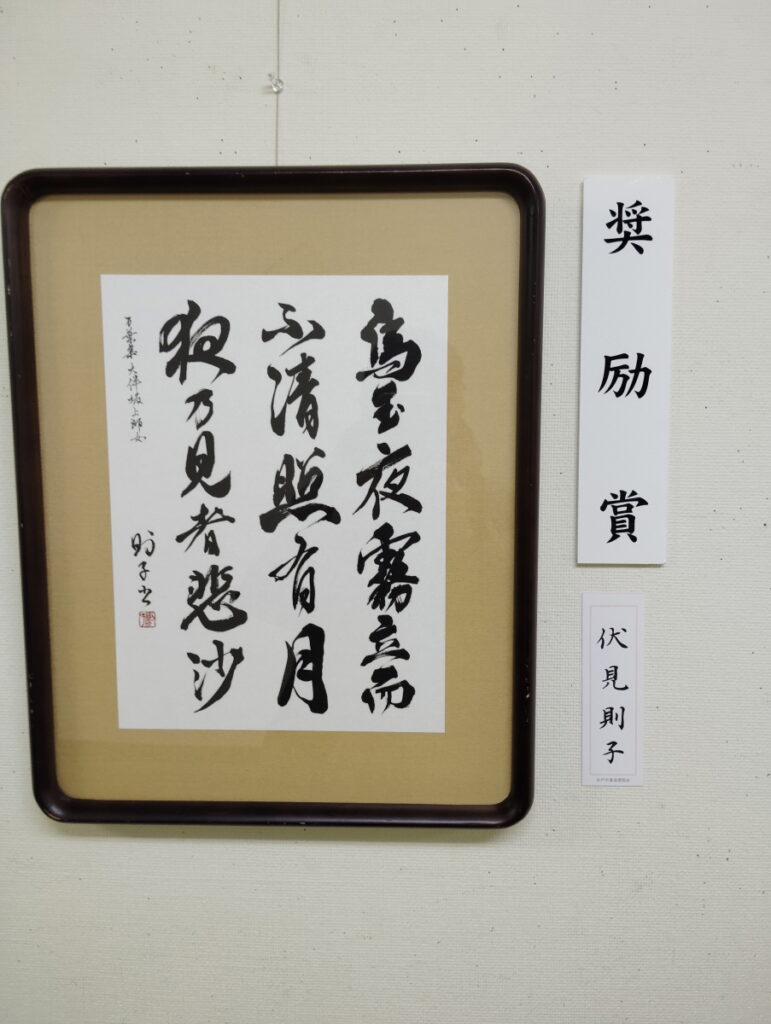 奨励賞
伏見則子
烏玉夜霧立而
不清照有月
夜乃見者悲沙
万葉集 大伴坂上郎女
則子书